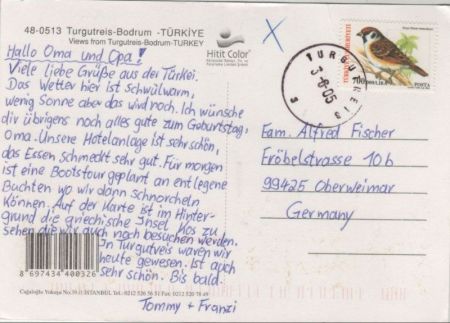 48-0513 Turgutreis-Bodrum -TÜRKİYE
Views from Turgutreis-Bodrum-TURKEY
Hitit Color
Hallo Oma und Opa!
Viele liebe Grüße aus der Türkei.
Das Wetter hier ist schwülwarm,
wenig Sonne aber das wird noch. Ich wünsche
dir übrigens noch alles gute zum Geburtstag,
Oma. Unsere Hotelanlage ist sehr schön,
das Essen schmeckt sehr gut. Für morgen
ist eine Bootstour geplant an entlegene
Buchten wo wir dann schnorcheln
können. Auf der Karte ist im Hinter-
grund die griechische Insel Kos zu
sehen die wir auch noch besuchen werden.
In Turgutreis waren wir
heute gewesen. Ist auch
sehr schön. Bis bald.
Tommy + Franzi
8 697434 400326
Cağaloğlu Yokuşu No:39 İSTANBUL Tel.: 0212 526 56 51 Fax: 0212 520 78 49
TÜRKİYE CUMHURİYETİ
700
POSTA
TURGUTREIS
3-6-05
Fam. Alfred Fischer
Fröbelstrasse 10b
99425 Oberweimar
Germany